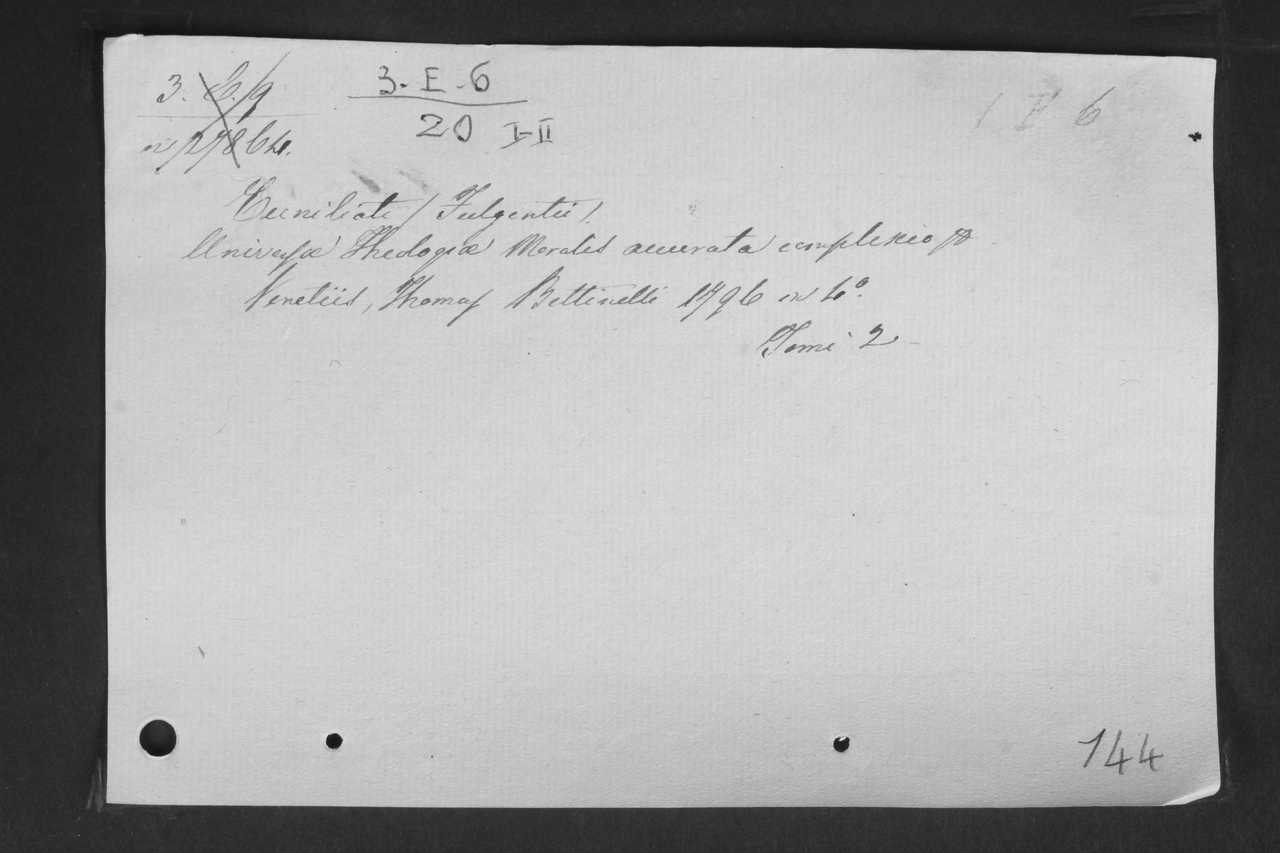 3. E. 9
3. E. 6
20 I-II
1 E 6
Cuniliati / Fulgentii /
Universæ Theologiæ Moralis accurata complexio
Venetiis, Thomas Bettinelli 1796 in 4º.
Tomi 2
144